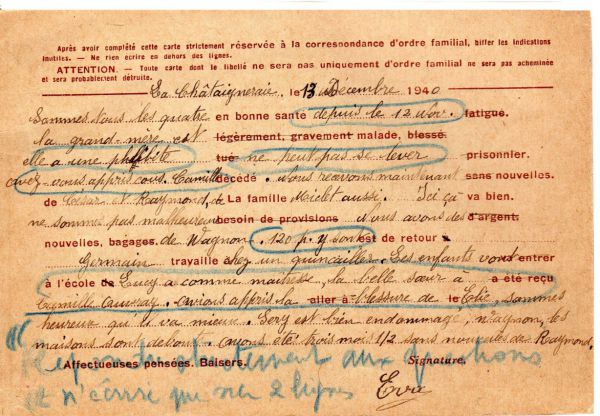 Après avoir complété cette carte strictement réservée à la correspondance d'ordre familial, biffer les indications
inutiles. — Ne rien écrire en dehors des lignes.
ATTENTION. — Toute carte dont le libellé ne sera pas uniquement d'ordre familial ne sera pas acheminée
et sera probablement détruite.
La Châtaigneraie, le 13 Décembre 1940
Sommes tous les quatre en bonne santé depuis le 12 Nov. fatigué.
la grand-mère est légèrement, gravement malade, blessé
elle a une phlébite tué ne peut pas se lever prisonnier.
avez-vous appris cous. Camille décédé. Nous recevons maintenant sans nouvelles.
de César et Raymond, de La famille Micht aussi. Ici ça va bien.
ne sommes pas malheureux besoin de provisions Nous avons des d'argent.
nouvelles, bagages de Wagnon. 120 p. y sont est de retour
Germain travaille chez un quincailler. Les enfants vont entrer
à l'école de Lucy a comme maîtresse, la belle sœur à a été reçu
Camille . avions appris la aller à blessure de le Elie, sommes
heureux qu'il va mieux. Gery est bien endommagé, Wagnon, les
maisons sont debout. avons été trois mois 1/2 sans nouvelles de Raymond.
Affectueuses pensées. Baisers. Signature.
Répondu aux questions
et n'écrire que sur 2 lignes
Eva